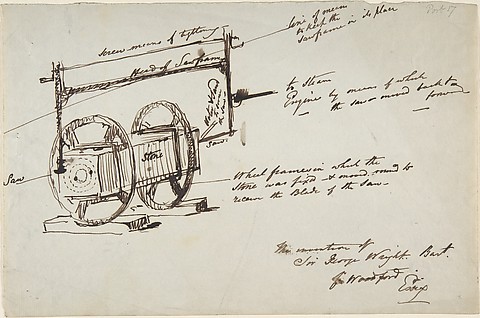 line of means
to keep the
Saw frame in its place
Screw means of tighting
Head of Saw frame
to Steam
Engine by means of which
the saw moved back &
forward
Saw
Stone
Saw
Wheel frames in which the
Stone was fixed & moved round to
receive the Blade of the Saw
The invention of
Sir George Wright Bart.
of Woodford
Essex